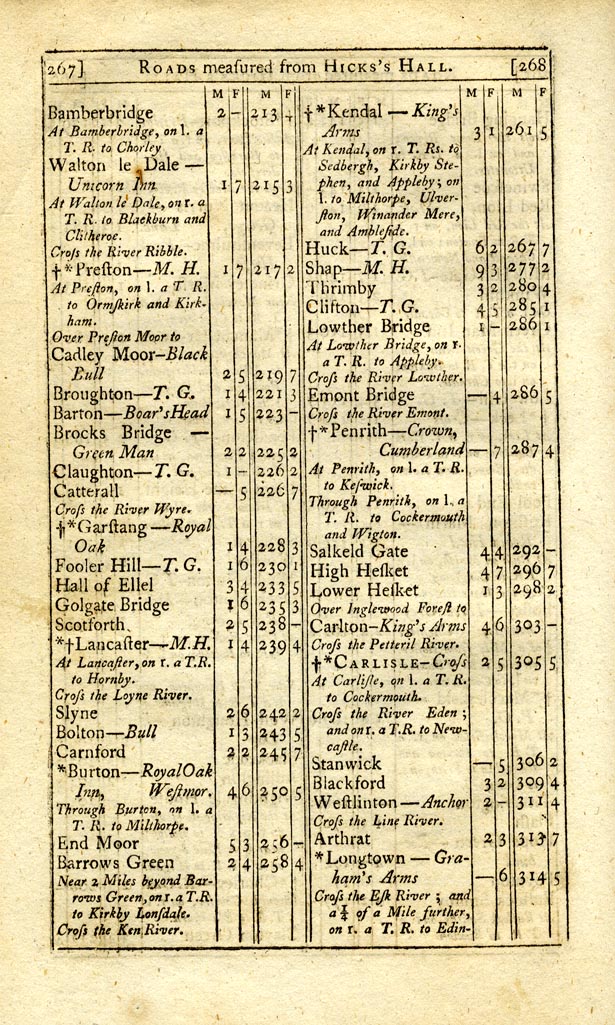 267] ROADS meaſured from HICKS's HALL. [268
M F M F
Bamberbridge 2 – 213 4
At Bamberbridge, on l. a
T. R. to Chorley
Walton le Dale —
Unicorn Inn 1 7 215 3
At Walton le Dale, on r. a
T. R. to Blackburn and
Clitheroe.
Croſs the River Ribble.
†*Preſton—M. H. 1 7 217 2
At Preſton, on l. a T. R.
to Ormſkirk and Kirk-
ham.
Over Preſton Moor to
Cadley Moor–Black
Bull 2 5 219 7
Broughton—T. G. 1 4 221 3
Barton—Boar's Head 1 5 223 –
Brocks Bridge —
Green Man 2 2 225 2
Claughton—T. G. 1 – 226 2
Catterall — 5 226 7
Croſs the River Wyre.
†*Garſtang —Royal
Oak 1 4 228 3
Fooler Hill—T. G. 1 6 230 1
Hall of Ellel 3 4 233 5
Golgate Bridge 1 6 235 3
Scotforth 2 5 238 –
*†Lancaſter—M.H. 1 4 239 4
At Lancaſter, on r. a T.R.
to Hornby.
Croſs the Loyne River.
Slyne 2 6 242 2
Bolton—Bull 1 3 243 5
Carnford 2 2 245 7
*Burton—Royal Oak
Inn, Weſtmor. 4 6 250 5
Through Burton, on l. a
T. R. to Milthorpe.
End Moor 5 3 256 –
Barrows Green 2 4 258 4
Near 2 Miles beyond Bar-
rows Green, on r. a T.R.
to Kirkby Lonſdale.
Croſs the Ken River.
M F M F
†*Kendal — King's
Arms 3 1 261 5
At Kendal, on r. T. Rs. to
Sedbergh, Kirkby Ste-
phen, and Appleby; on
l. to Milthorpe, Ulver-
ſton, Winander Mere,
and Ambleſide.
Huck—T. G. 6 2 267 7
Shap—M. H. 9 3 277 2
Thrimby 3 2 280 4
Clifton—T. G. 4 5 285 1
Lowther Bridge 1 – 286 1
At Lowther Bridge, on r.
a T. R. to Appleby.
Croſs the River Lowther.
Emont Bridge — 4 286 5
Croſs the River Emont.
†*Penrith—Crown,
Cumberland — 7 287 4
At Penrith, on l. a T. R.
to Keſwick.
Through Penrith, on l. a
T. R. to Cockermouth
and Wigton.
Salkeld Gate 4 4 292 –
High Heſket 4 7 296 7
Lower Heſket 1 3 298 2
Over Inglewood Foreſt to
Carlton–King's Arms 4 6 303 –
Croſs the Petteril River.
†*CARLISLE–Croſs 2 5 305 5
At Carliſle, on l. a T. R.
to Cockermouth.
Croſs the River Eden;
and on r. a T.R. to New-
caſtle.
Stanwick — 5 306 2
Blackford 3 2 309 4
Weſtlinton — Anchor 2 – 311 4
Croſs the Line River.
Arthrat 2 3 313 7
*Longtown — Gra-
ham's Arms — 6 314 5
Croſs the Eſk River; and
a ¼ of a Mile further,
on r. a T. R. to Edin-